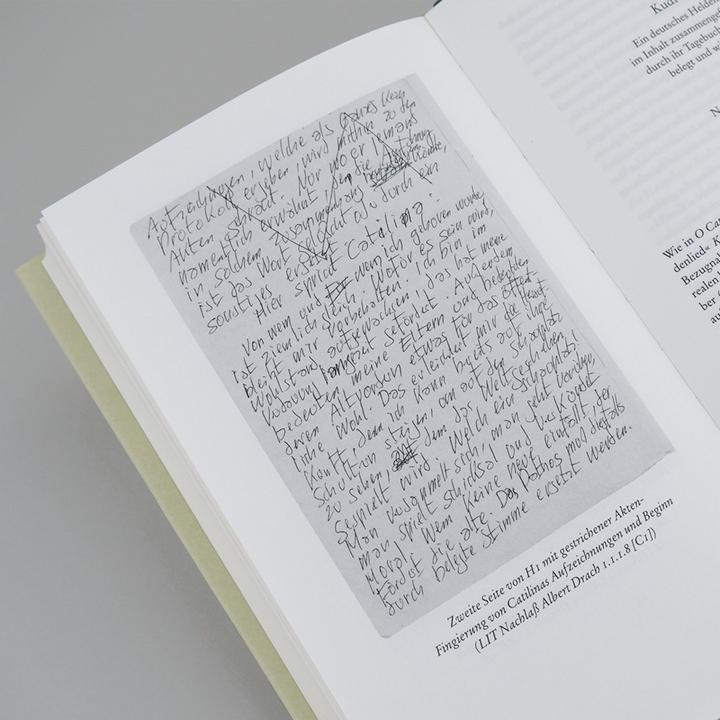 Aufzeichnungen, welche als
Protokoll ergeben, wird mithin zu den
Akten Nur wo er jemand
namentlich erwähnt
in solchem Zusammenhang
ist das Wort nicht durch ein
sonstiges ersetzt.
Hier spricht Catilina:
Von wem und wem ich geboren wurde,
ist ziemlich gleich, wofür es sein wird,
bleibt mir vorbehalten. Ich bin im
Wohlstand aufgewachsen, das hat meine
gefördert. Außerdem
bedeuten meine Eltern und bedeuteten
deren Altvordern etwas für das öffent-
liche Wohl. Das erleichtert mir die heut
kauft, denn ich kann bereits auf
Schultern steigen, um auf den Schauplatz
zu sehen, auf dem das Welt
gespielt wird. Welch ein Schauplatz!
Man versammelt sich, man geht
man spielt Schicksal und verkündet
Moral. Wem keine neue einfällt, der
fördert die alte. Das Pathos muß diesfalls
durch belegte Stimme ersetzt werden.
Zweite Seite von H1 mit gestrichener Akten-
Fingierung von Catilinas Aufzeichnungen und Beginn
(LIT Nachlaß Albert Drach 1.1.1.8 [C1])
Ein deutsches Helde
im Inhalt zusammengef
durch ihr Tagebuch
belegt und w
N
Wie in O Ca
denlied« K
Bezugna
realen
ber
au